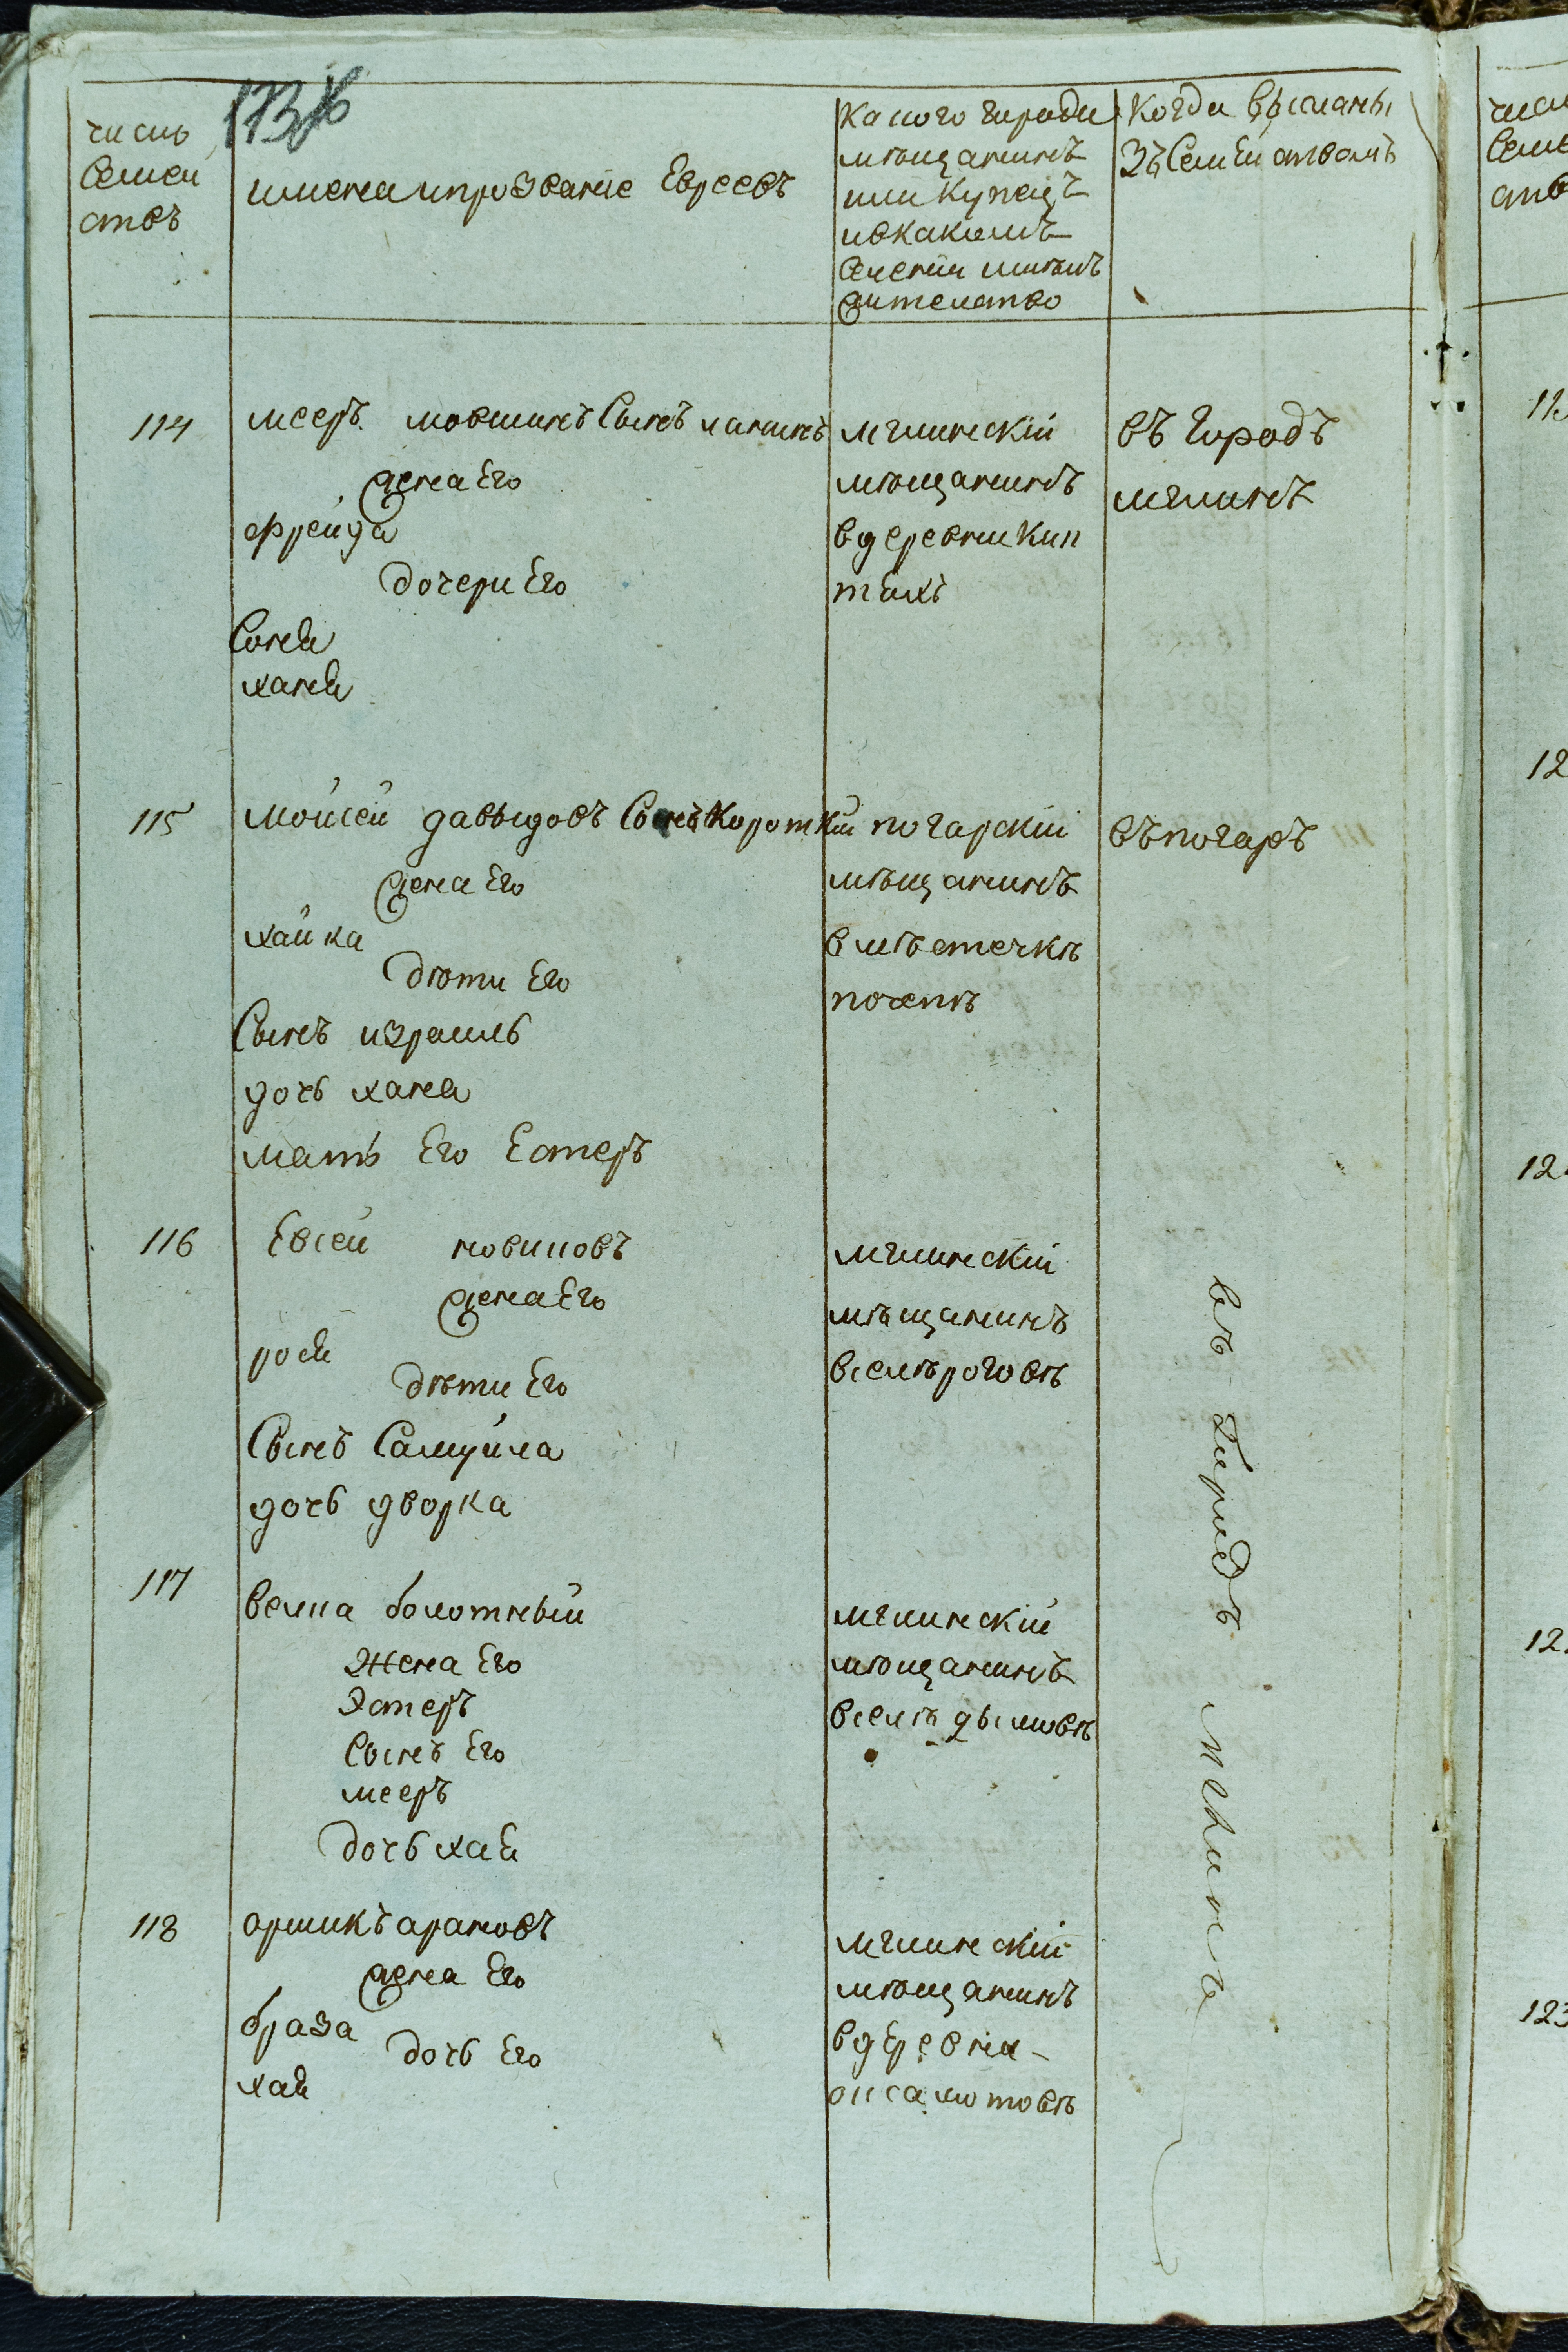 число
Семей
ствъ
имена и прозвание Евреевъ
Какого города
мѣщанинъ
или Купецъ
и в какомъ
Селении имѣлъ
жителство
Когда высланы
зъ Семействомъ
114
меерь мовшинъ Сынъ
жена Его
фрейда
дочери Его
Соня
ханя
мглинский
мѣщанинъ
в деревни Кип
тяхъ
въ Городъ
мглинъ
115
мойсей давыдовъ Сынъ Короткий
жена Его
хайка
дѣти Его
Сынъ израиль
дочь хана
мать Его Естеръ
погарский
мѣщанинъ
в мѣстечкѣ
почепѣ
въ погаръ
116
Евсей новиковъ
жена Его
рося
дѣти Его
Сынъ Самуйла
дочь дворка
мглинский
мѣщанинъ
в селѣ роговѣ
въ Городъ мглинъ
117
велка болотный
Жена Его
Эстеръ
Сынъ Его
мееръ
дочь хая
мглинский
мѣщанинъ
в селѣ дымовѣ
118
оршикъ ароновъ
жена Его
браза
дочь Его
хая
мглинский
мѣщанинъ
в деревни